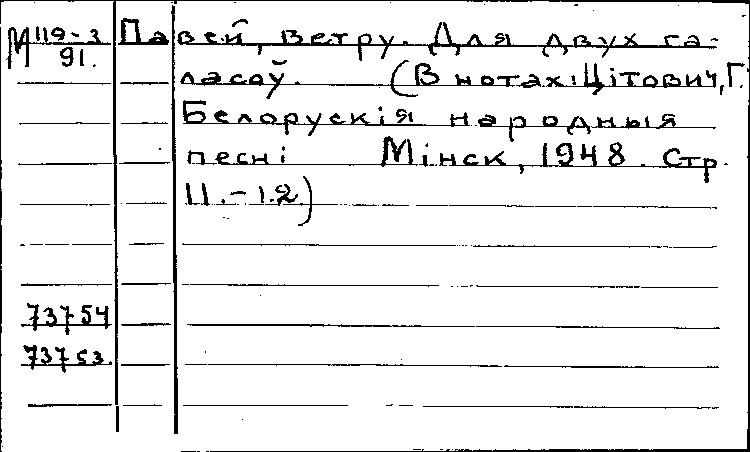 М 119-3 Павей, ветру. Для двух га-
91. ласаў. (В нотах: Цітович, Г.
Белорускія народныя
песні Мінск, 1948. Стр.
11.-12)
73754
73753.